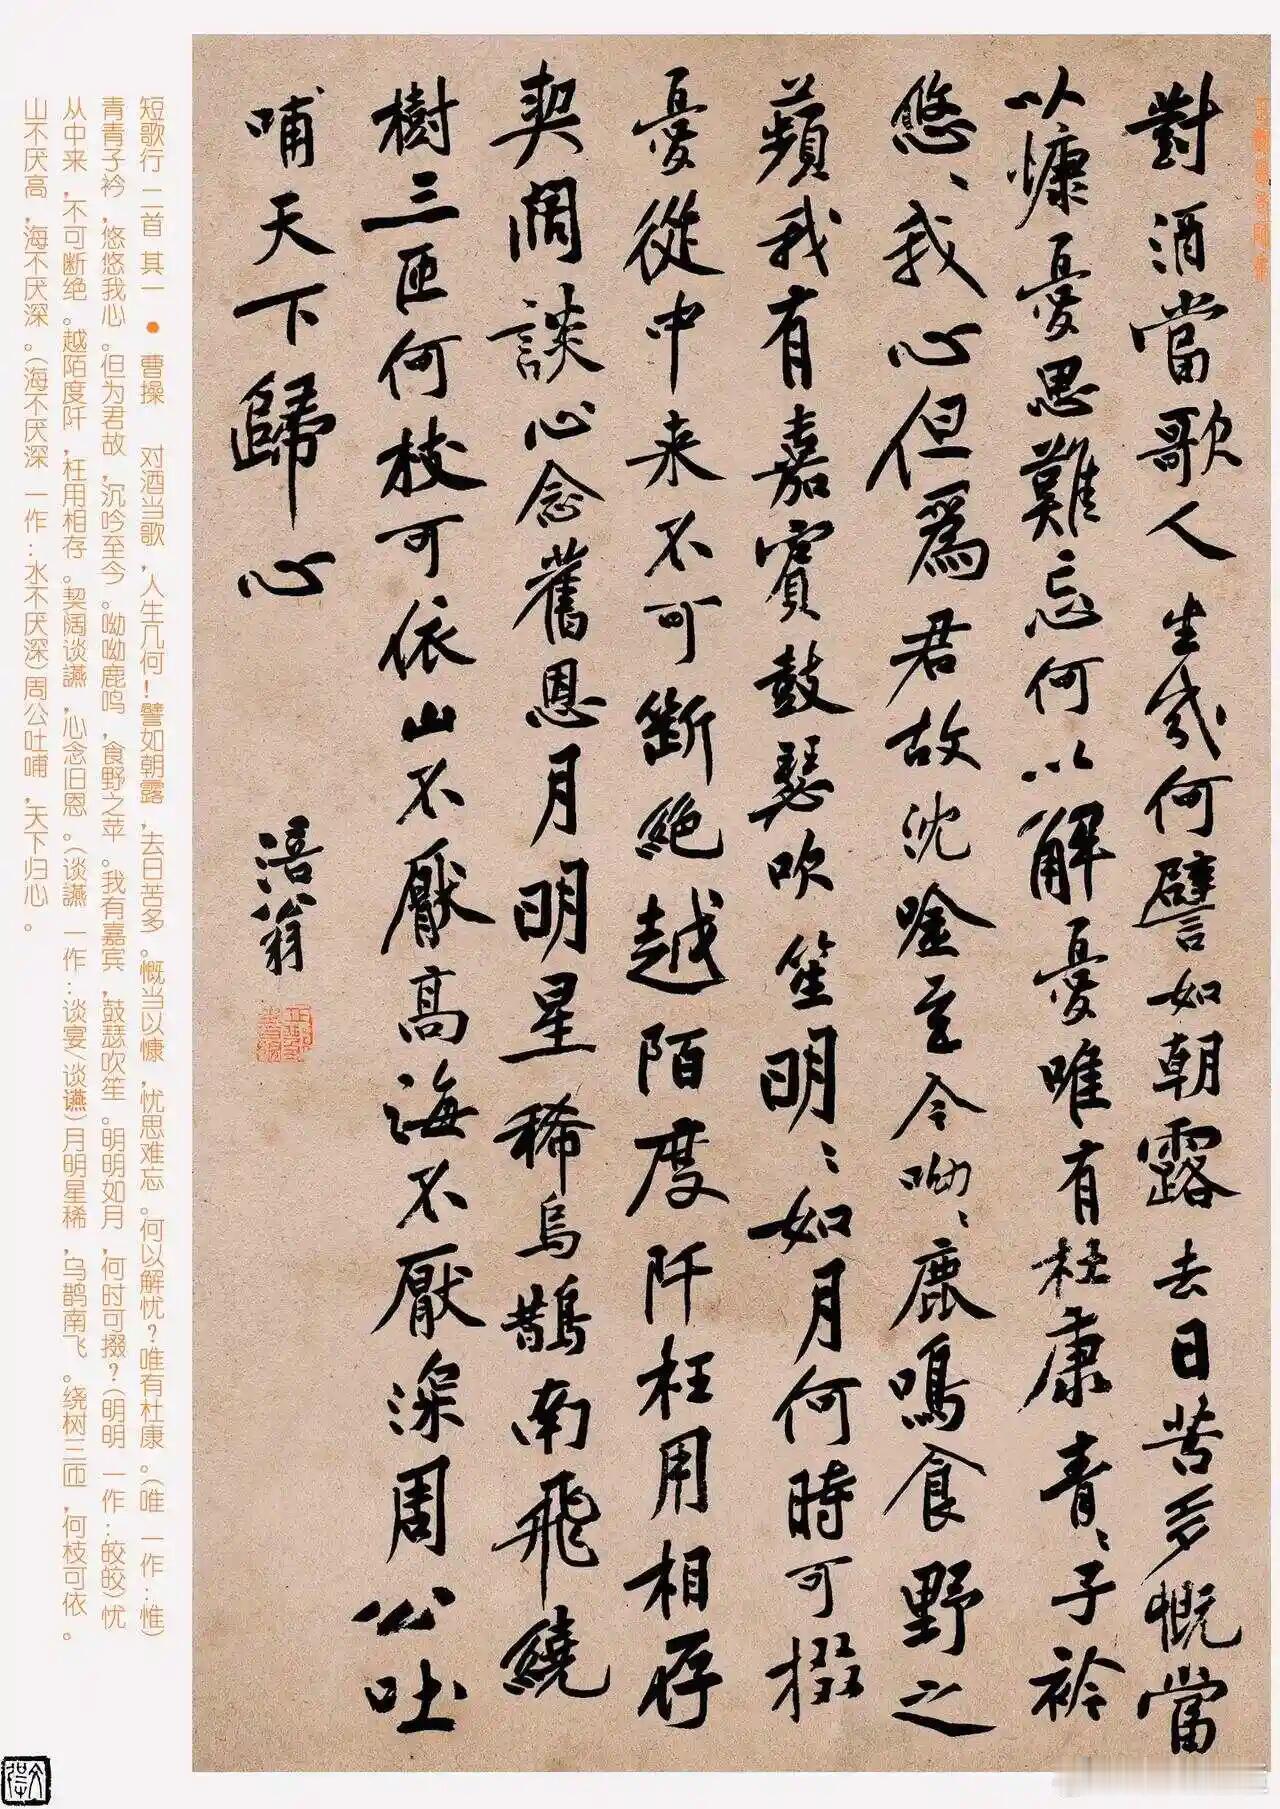 對酒當歌人生幾何譬如朝露去日苦多慨當
以慷憂思難忘何以解憂唯有杜康青〻子衿
悠〻我心但爲君故沈吟至今呦〻鹿鳴食野之
蘋我有嘉賓鼓瑟吹笙明〻如月何時可掇
憂從中来不可斷絕越陌度阡枉用相存
契闊談心念舊恩月明星稀烏鵲南飛繞
樹三匝何枝可依山不厭高海不厭深周公吐
哺天下歸心
涪翁
短歌行 二首 其一 ● 曹操 对酒当歌,人生几何!譬如朝露,去日苦多。慨当以慷,忧思难忘。何以解忧?唯有杜康。(唯 一作:惟)
青青子衿,悠悠我心。但为君故,沉吟至今。呦呦鹿鸣,食野之苹。我有嘉宾,鼓瑟吹笙。明明如月,何时可掇?(明明 一作:皎皎)忧
从中来,不可断绝。越陌度阡,枉用相存。契阔谈讌,心念旧恩。(谈讌 一作:谈宴/谈䜩)月明星稀,乌鹊南飞。绕树三匝,何枝可依。
山不厌高,海不厌深。(海不厌深 一作:水不厌深)周公吐哺,天下归心。